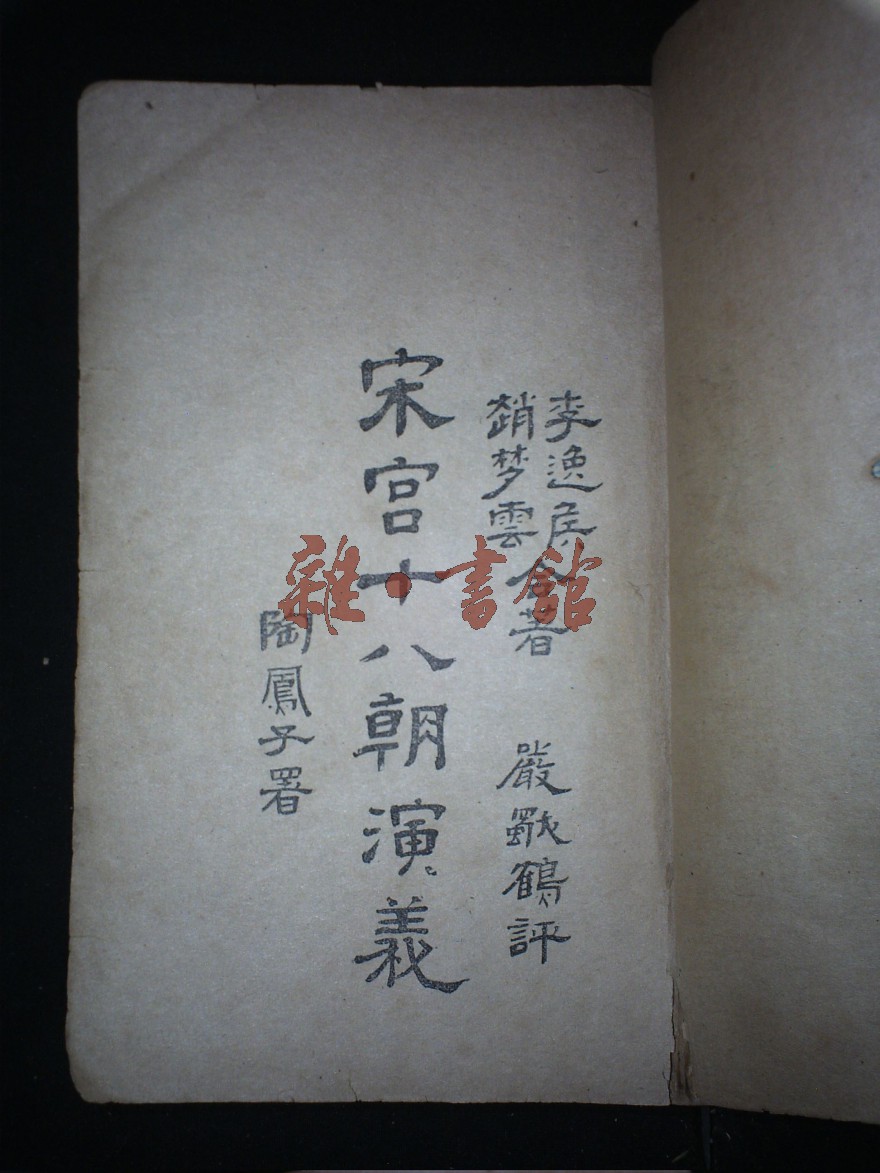 李逸侯
趙梦雲
合著
嚴獨鶴評
宋宮十八朝演義
陶鳳子署
雜·書館